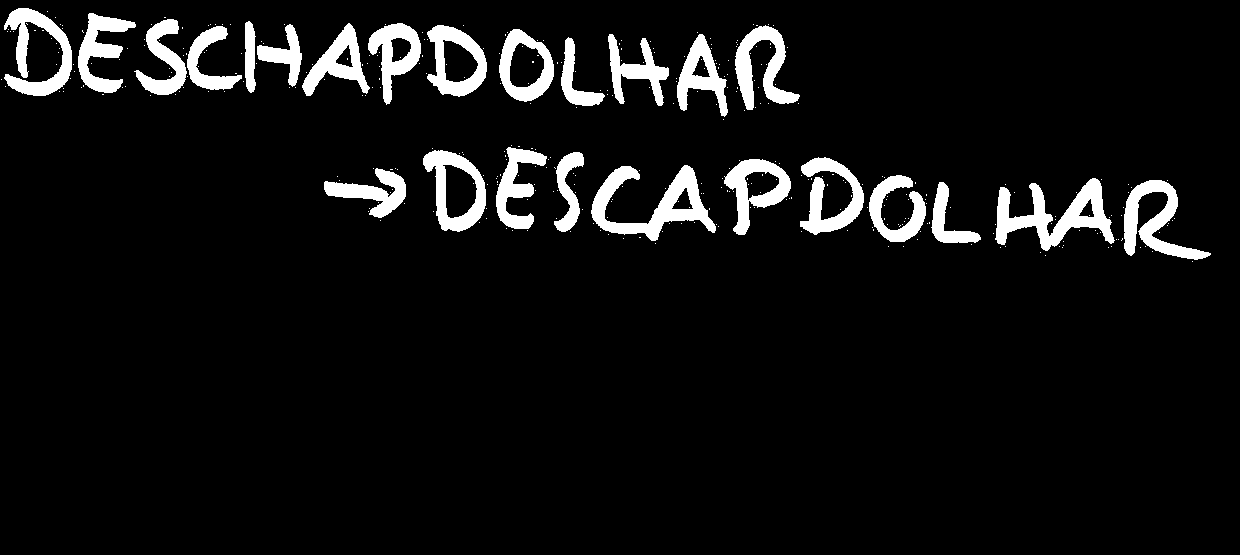 DESCHAPDOLHAR
→ DESCAPDOLHAR